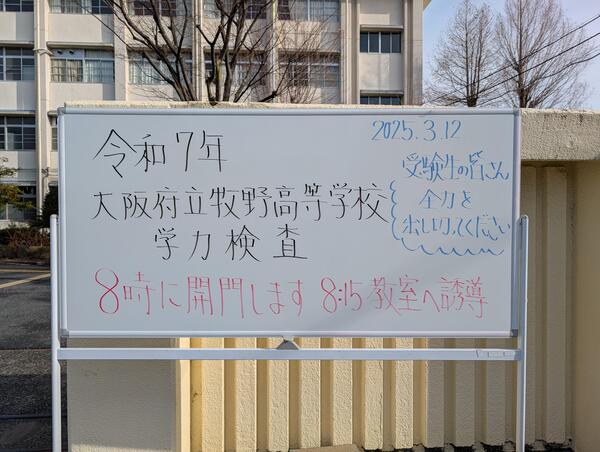 令和7年
大阪府立牧野高等学校
学力検査
8時に開門します 8:15 教室へ誘導
2025.3.12
受験生の皆さん
全力を
出し切ってください